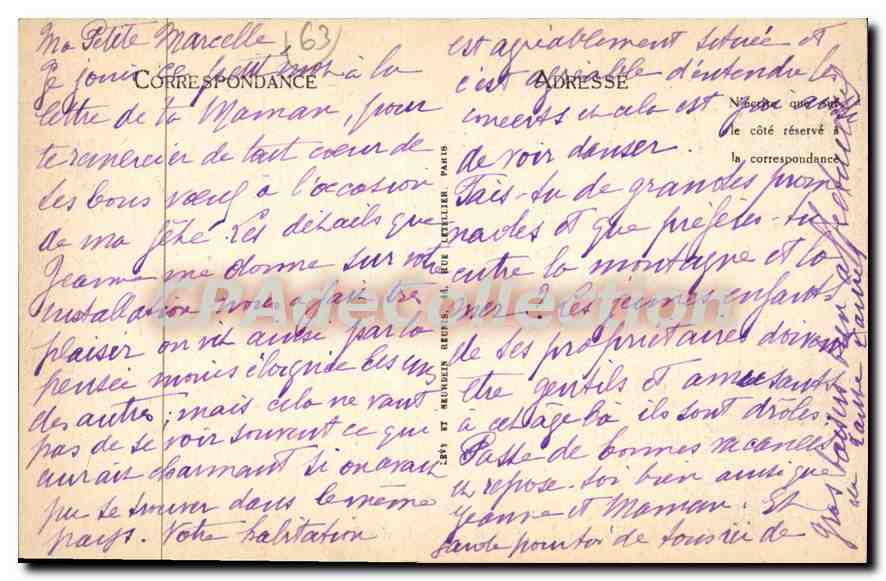 Ma Petite Marcelle,
(63)
CORRESPONDANCE
Je joins ce petit mot à la
lettre de ta Maman, pour
te remercier de tout cœur de
tes bons vœux à l'occasion
de ma fête. Les détails que
Jeanne me donne sur votre
installation nous a fait très
plaisir on vit ainsi par la
pensée moins éloignée les uns
des autres; mais cela ne vaut
pas de se voir souvent ce que
aurait charmant si on avait
pu se trouver dans le même
pays. Votre habitation
LEVY ET NEURDEIN REUNIS, 44, RUE LETELLIER, PARIS
ADRESSE
N'écrire que sur
le côté réservé à
la correspondance
est agréablement située et
c'est agréable d'entendre les
et cela est
de voir danser.
Fais-tu de grandes prome
nades et que préfères-tu
entre la montagne et la
mer? Les jeunes enfants
de ses propriétaires doivent
être gentils et amusants
à cet âge là ils sont drôles.
Passe de bonnes vacances
et repose-toi bien ainsi que
Jeanne et Maman. Et
garde pour toi de tous ici de
gros baisers bien affectueux
de Tante
CPA de Collection